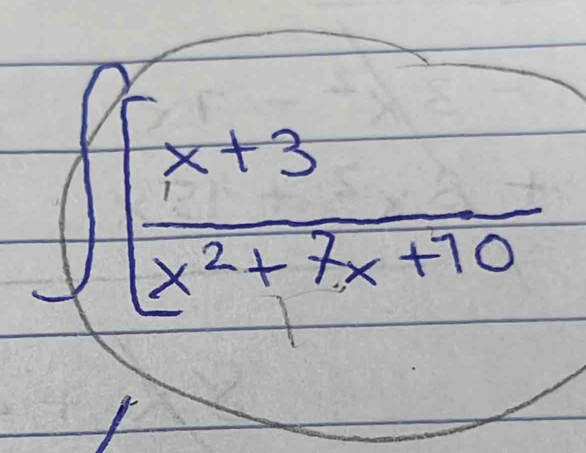 ∫[x+3
x²+7x+10